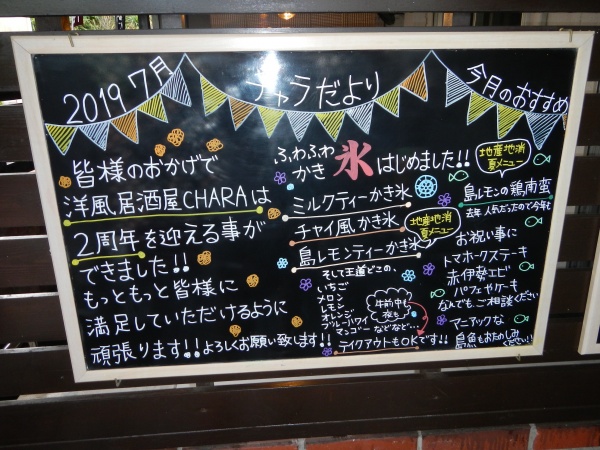 2019 7月
チャラだより
今月のおすすめ
皆様のおかげで
洋風居酒屋CHARAは
2周年を迎える事が
できました!!
もっともっと皆様に
満足していただけるように
頑張ります!!よろしくお願い致します!!
ふわふわ
かき氷はじめました!!
ミルクティーかき氷
チャイ風かき氷
島レモンティーかき氷
地産地消
夏メニュー
そして王道どこの、
いちご
メロン
レモン
オレンジ
ブルーハワイ
マンゴー
などなど…
午前中も
夜も♪
テイクアウトもOKです!!
地産地消
夏メニュー
島レモンの鶏南蛮
去年人気だったので今年も
お祝い事に
トマホークステーキ
赤伊勢エビ
パフェやケーキ
なんでもご相談ください
マニアックな
島魚もおたのしみ
ください!!